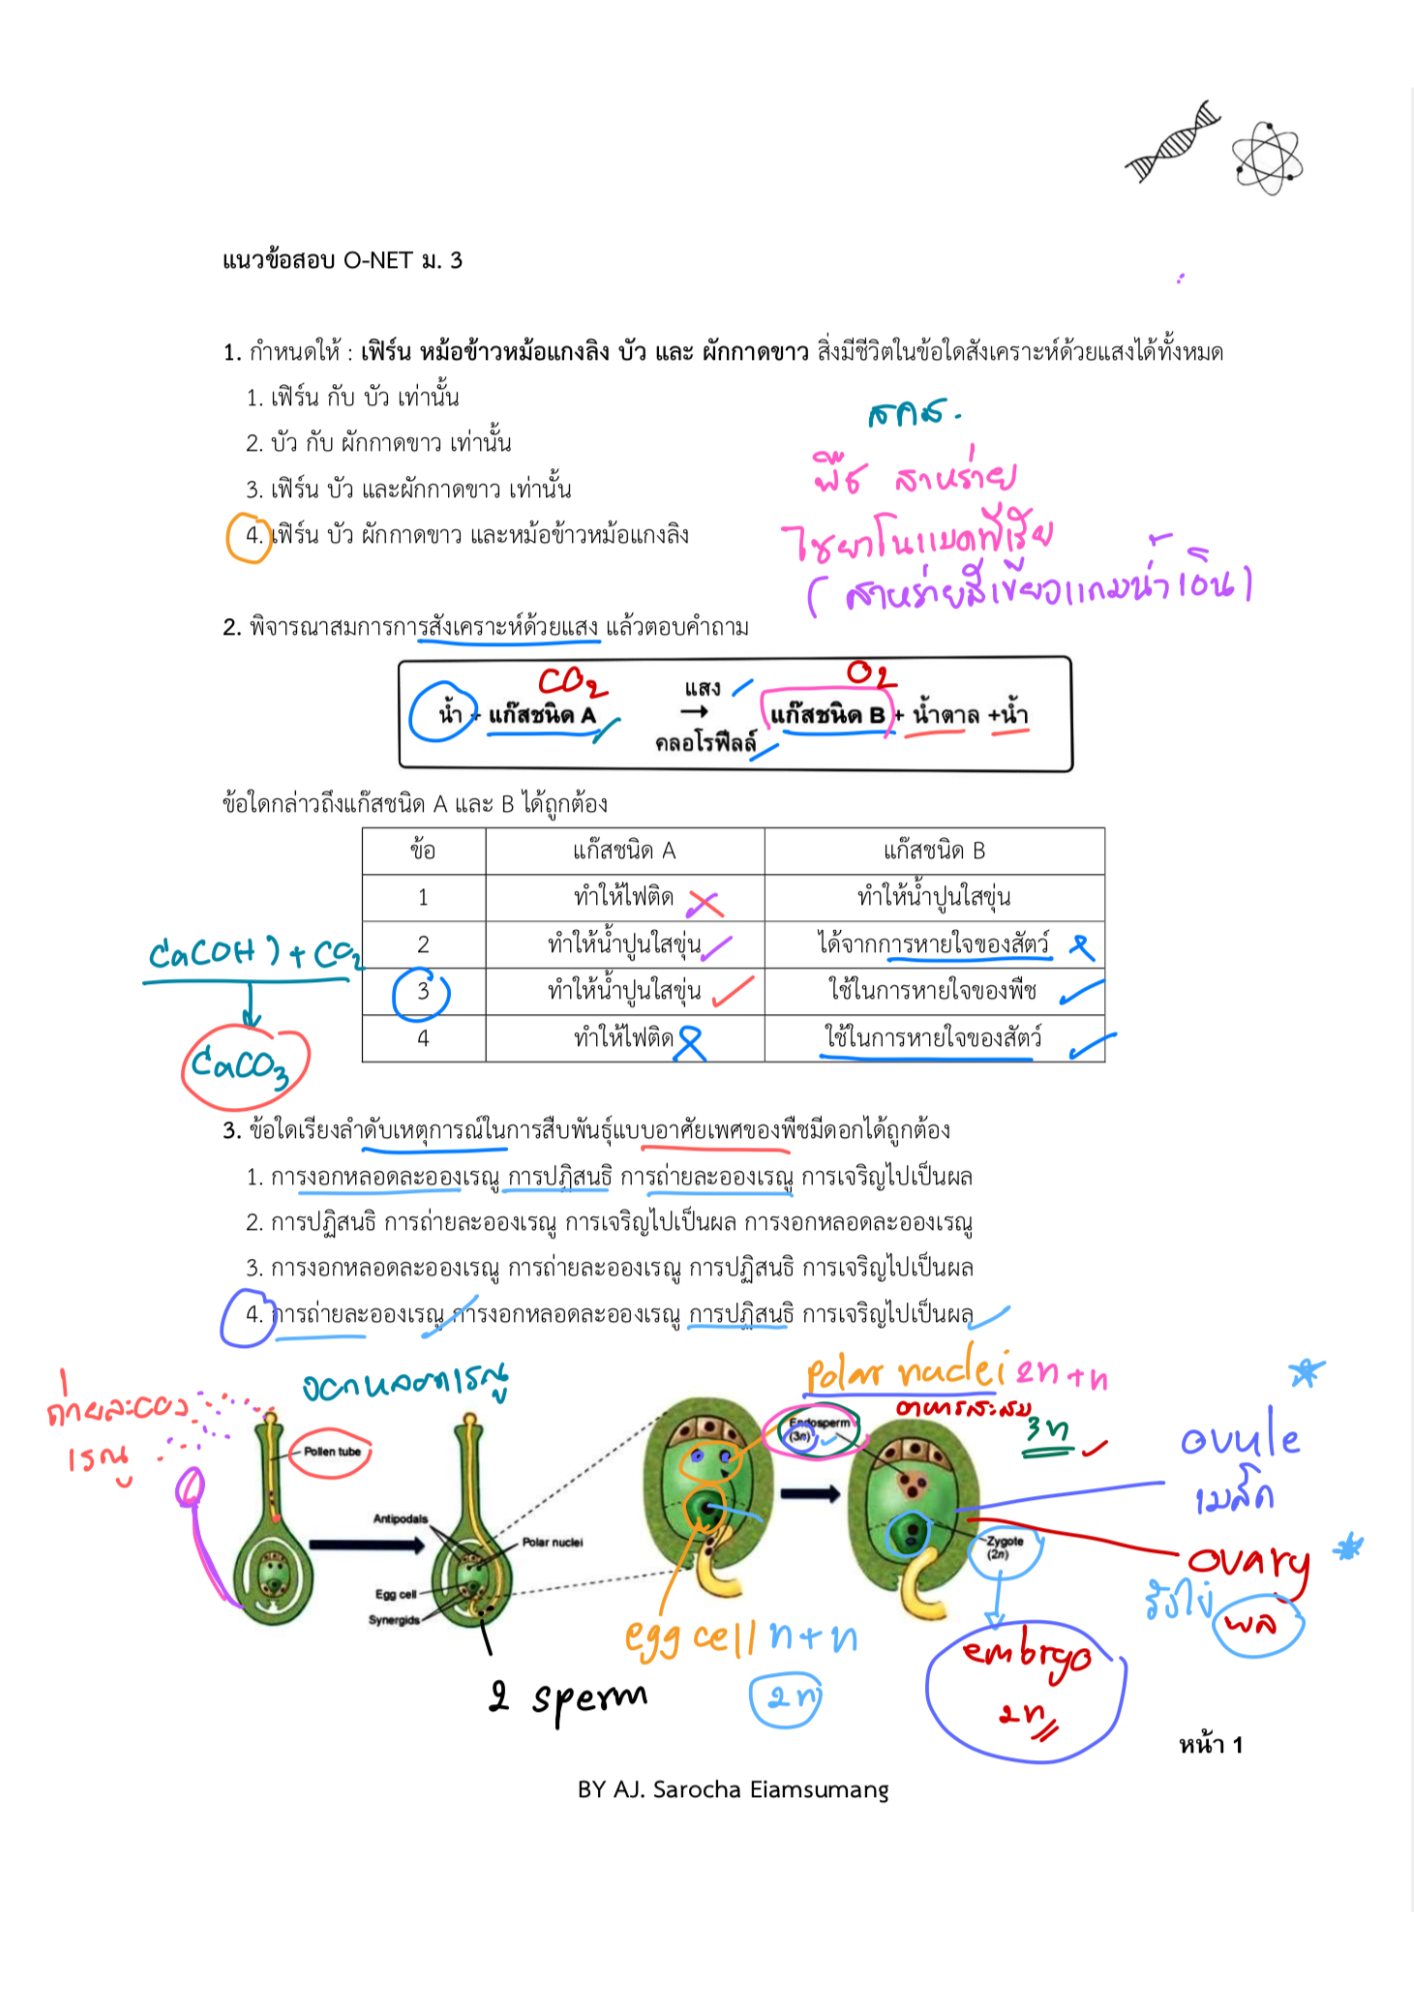 แนวข้อสอบ O-NET ม. 3
1. กำหนดให้ : เฟิร์น หม้อข้าวหม้อแกงลิง บัว และ ผักกาดขาว สิ่งมีชีวิตในข้อใดสังเคราะห์ด้วยแสงได้ทั้งหมด
1. เฟิร์น กับ บัว เท่านั้น
2. บัว กับ ผักกาดขาว เท่านั้น
3. เฟิร์น บัว และผักกาดขาว เท่านั้น
4. เฟิร์น บัว ผักกาดขาว และหม้อข้าวหม้อแกงลิง
สคส.
พืช สาหร่าย
ไซยาโนแบคทีเรีย
(สาหร่ายสีเขียวแกมน้ำเงิน)
2. พิจารณาสมการการสังเคราะห์ด้วยแสง แล้วตอบคำถาม
CO2 O2
แสง
น้ำ + แก๊สชนิด A → แก๊สชนิด B + น้ำตาล +น้ำ
คลอโรฟีลล์
ข้อใดกล่าวถึงแก๊สชนิด A และ B ได้ถูกต้อง
ข้อ แก๊สชนิด A แก๊สชนิด B
1 ทำให้ไฟติด ทำให้น้ำปูนใสขุ่น
2 ทำให้น้ำปูนใสขุ่น ได้จากการหายใจของสัตว์
3 ทำให้น้ำปูนใสขุ่น ใช้ในการหายใจของพืช
4 ทำให้ไฟติด ใช้ในการหายใจของสัตว์
Ca(OH) + CO2
CaCO3
3. ข้อใดเรียงลำดับเหตุการณ์ในการสืบพันธุ์แบบอาศัยเพศของพืชมีดอกได้ถูกต้อง
1. การงอกหลอดละอองเรณู การปฏิสนธิ การถ่ายละอองเรณู การเจริญไปเป็นผล
2. การปฏิสนธิ การถ่ายละอองเรณู การเจริญไปเป็นผล การงอกหลอดละอองเรณู
3. การงอกหลอดละอองเรณู การถ่ายละอองเรณู การปฏิสนธิ การเจริญไปเป็นผล
4. การถ่ายละอองเรณู การงอกหลอดละอองเรณู การปฏิสนธิ การเจริญไปเป็นผล
ถ่ายละออง
เรณู
งอกหลอดเรณู
Polar nuclei 2n + n
อาหารสะสม
3n
Pollen tube
Endosperm
(3n)
Antipodals
Polar nuclei
Egg cell
Synergids
Zygote
(2n)
ovule
เมล็ด
ovary
รังไข่
ผล
egg cell n + n
2n
2 sperm
embryo
2n
หน้า 1
BY AJ. Sarocha Eiamsumang